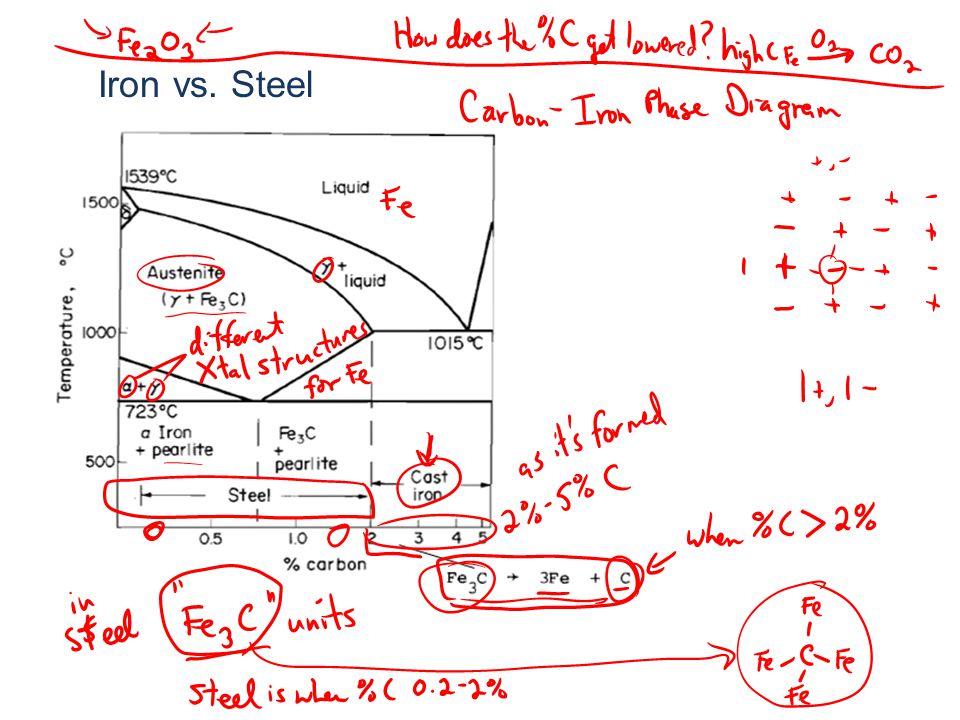 Fe2O3
How does the %C get lowered? high C Fe O2 → CO2
Iron vs. Steel
Carbon-Iron Phase Diagram
1539°C
Liquid
Fe
1500
δ
Austenite
(γ + Fe3C)
γ +
liquid
different
Xtal structures
for Fe
1000
1015°C
Temperature, °C
α + γ
723°C
α Iron
+ pearlite
Fe3C
+
pearlite
500
Steel
Cast
iron
0.5 1.0 2 3 4 5
% carbon
as it's formed
2%-5% C
when %C > 2%
Fe3C → 3Fe + C
in
steel
"Fe3C" units
Steel is when %C 0.2-2%
+,-
+ - + -
- + - +
1 + - + -
- + - +
1+, 1-
Fe
Fe - C - Fe
Fe